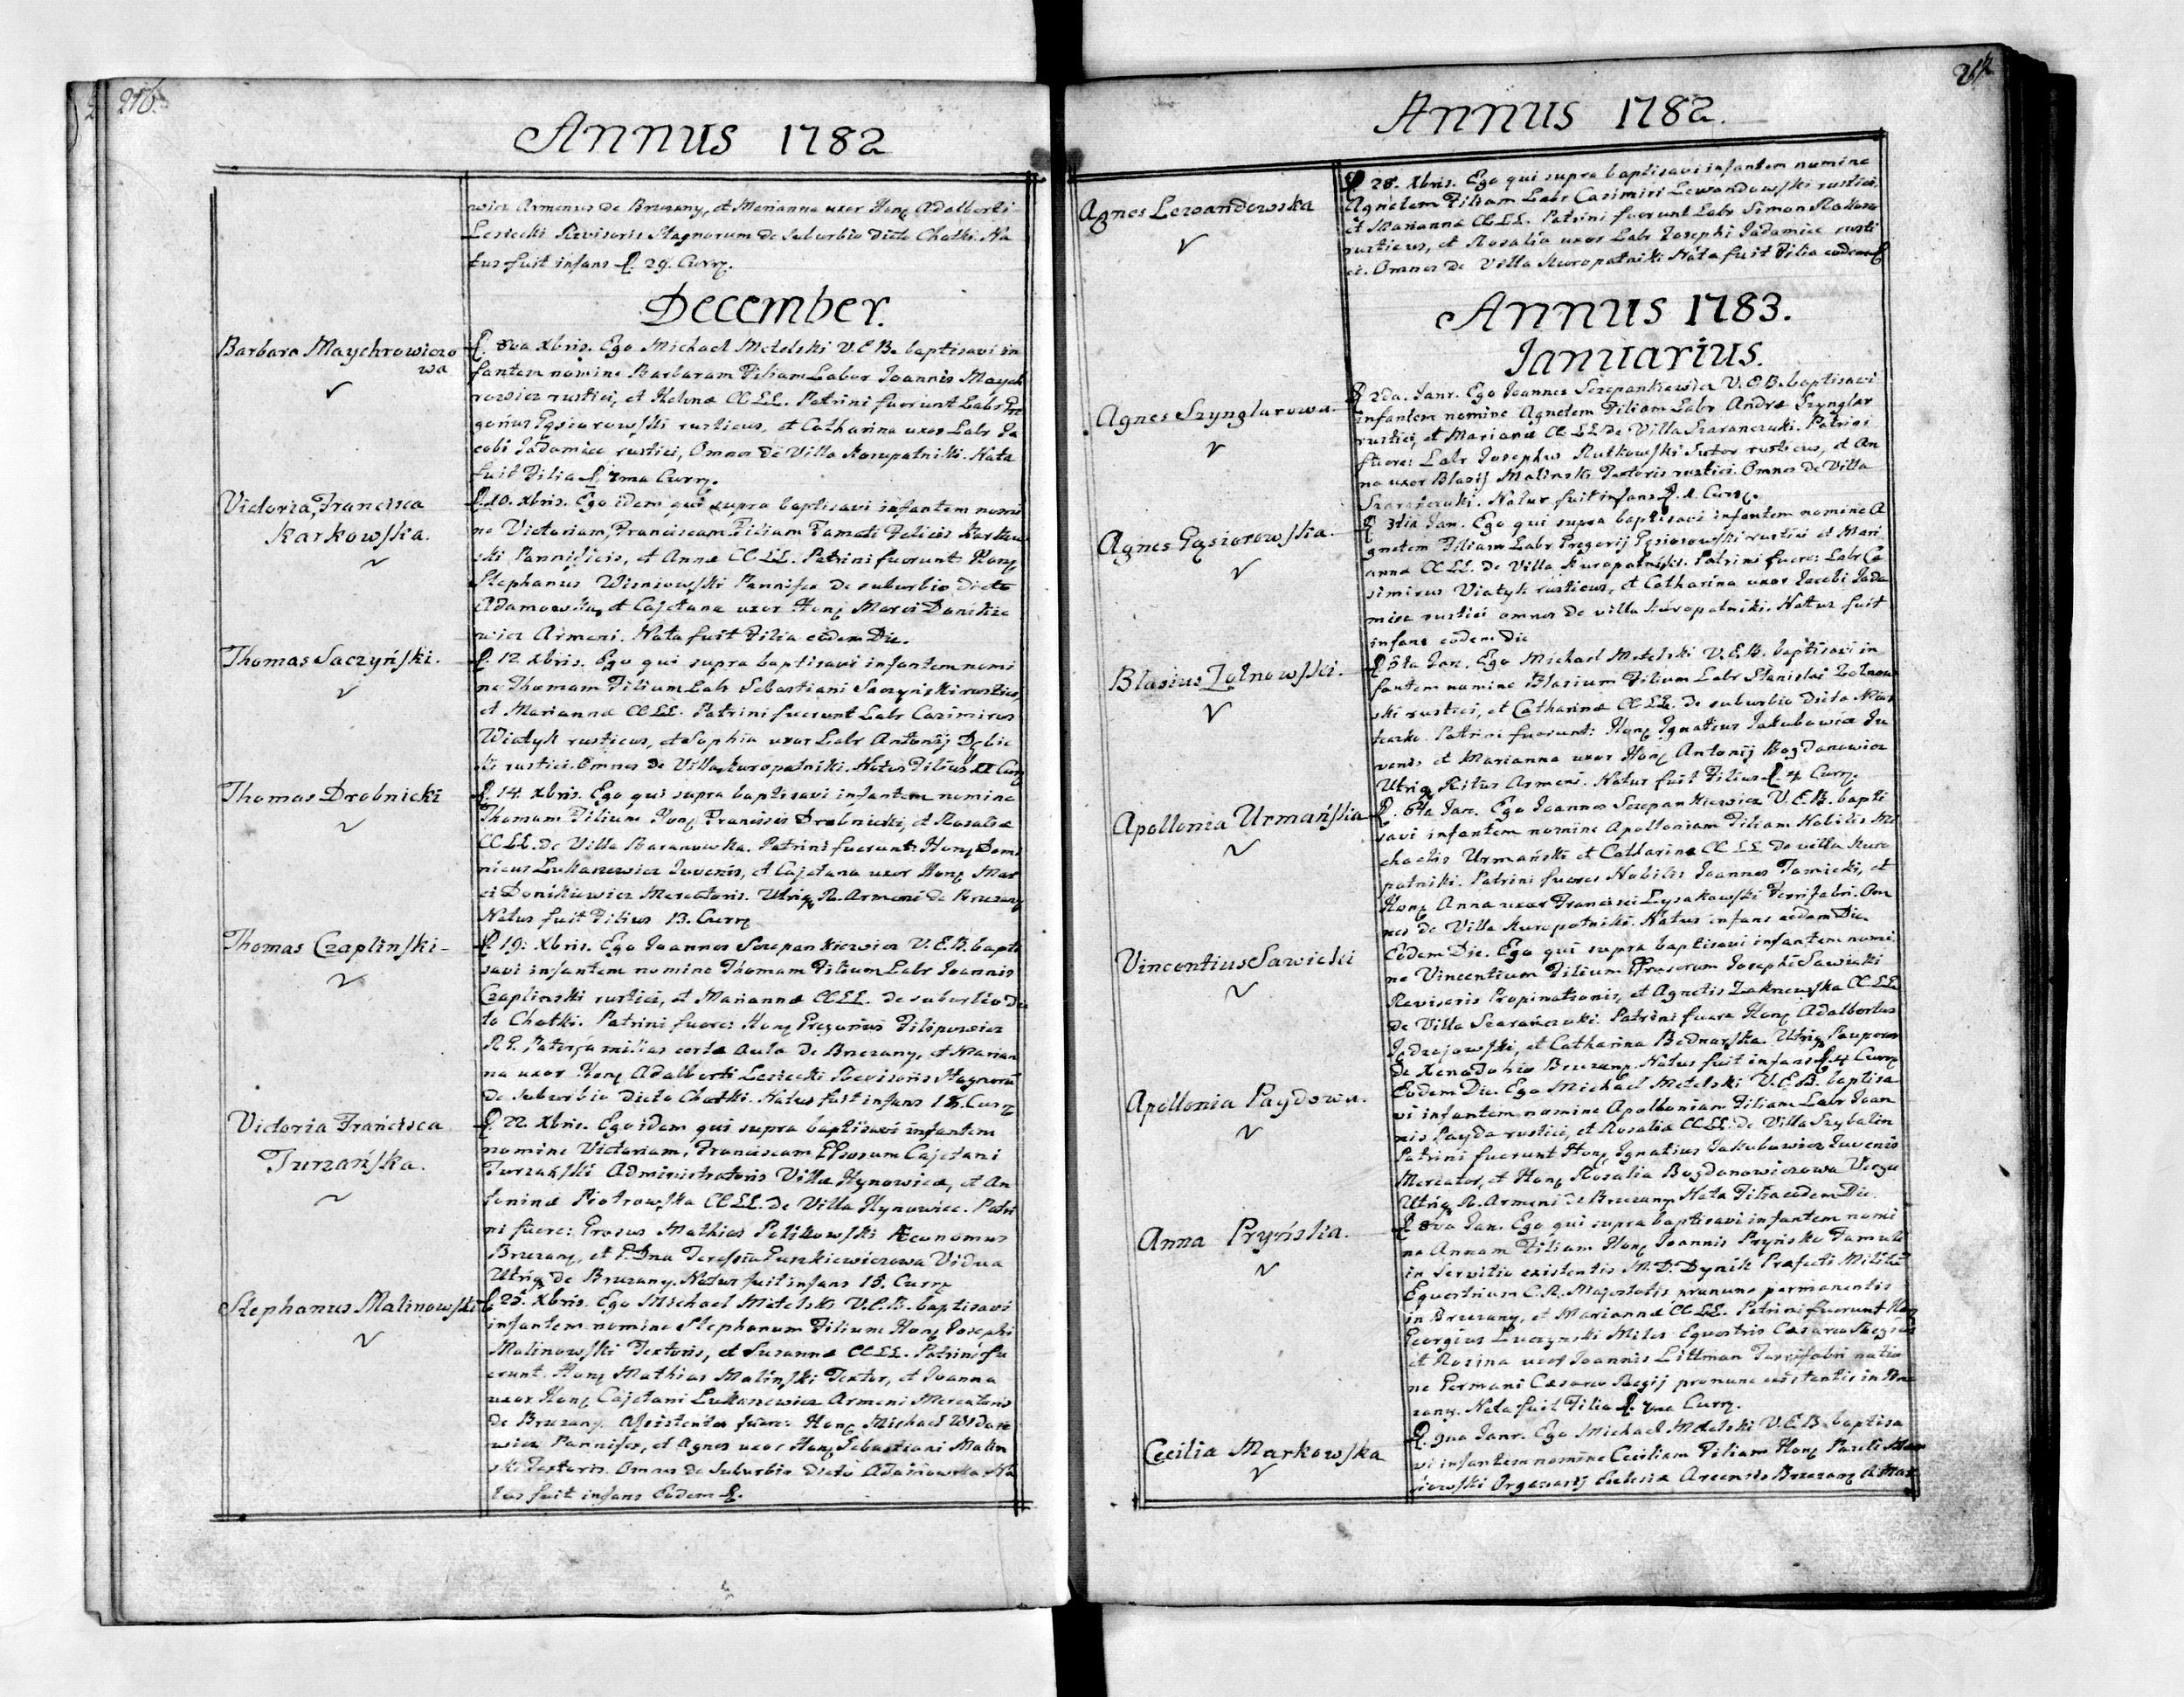 216.
Annus 1782
wicz Armenus de Brzezany, et Marianna uxor Hon Adalberti
Lesiecki Revisoris Stagnorum de Suburbio dicto Chatki. Na
tus fuit infans d. 29. Curr.
December.
Barbara Maychrowiczo
wa
d. 8va Xbris. Ego Michael Metelski V.E.B. baptisavi in
fantem nomine Barbaram Filiam Labor Joannis Maych
rowicz rustici, et Helenæ CC.LL. Patrini fuerunt Labr Gre
gorius Gąsiorowski rusticus, et Catharina uxor Labr Ja
cobi Jadamiec rustici, Omnes de Villa Kuropatniki. Nata
fuit Filia d. 7ma Curr.
Victoria, Francisca
Karkowska.
d. 10. Xbris. Ego idem qui supra baptisavi infantem nomi
ne Victoriam, Franciscam Filiam Famati Felicis Karkow
ski Pannificis, et Annæ CC.LL. Patrini fuerunt Hon
Stephanus Wisniowski Pannifex de suburbio dicto
Adamowka, et Cajetana uxor Hon Marci Donikie
wicz Armeni. Nata fuit Filia eodem Die.
Thomas Saczyński.
d. 12 Xbris. Ego qui supra baptisavi infantem nomi
ne Thomam Filium Labr Sebastiani Saczyński rustici,
et Mariannæ CC.LL. Patrini fuerunt Labr Casimirus
Wiatyk rusticus, et Sophia uxor Labr Antonij Dębic
ki rustici. Omnes de Villa Kuropatniki. Natus Filius XI Curr
Thomas Drobnicki
d. 14. Xbris. Ego qui supra baptisavi infantem nomine
Thomam Filium Hon Francisci Drobnicki, et Rosaliæ
CC.LL. de Villa Baranowka. Patrini fuerunt: Hon Domi
nicus Lukasiewicz Juvenis, et Cajetana uxor Hon Mar
ci Donikiewicz Mercatoris. Utriq R. Armeni de Brzezany
Natus fuit Filius 13. Curr
Thomas Czaplinski
d. 19. Xbris. Ego Joannes Szczepankiewicz V.E.B. bapti
savi infantem nomine Thomam Filium Labr Joannis
Czaplinski rustici, et Mariannæ CC.LL. de suburbio dic
to Chatki. Patrini fuere: Hon Gregorius Filipowicz
R G. Paterfamilias certa Aula de Brzezany, et Marian
na uxor Hon Adalberti Lesiecki Revisoris Stagnorũ
de suburbio dicto Chatki. Natus fuit infans 18. Curr
Victoria Francisca
Turzańska.
d. 22. Xbris. Ego idem qui supra baptisavi infantem
nomine Victoriam, Franciscam Cajetani
Turzański Administratoris Villæ Hynowicæ, et An
toninæ Piotrowska CC.LL. de Villa Hynowice. Patri
ni fuere: Grosus Mathias Polikowski Æconomus
Brzezany, et G. Dna Teressia Puszkiewiczowa Vidua
Utriq de Brzezany. Natus fuit infans 15. Curr
Stephanus Malinowski
d. 25. Xbris. Ego Michael Metelski V.E.B. baptisavi
infantem nomine Stephanum Filium Hon Josephi
Malinowski Textoris, et Susannæ CC.LL. Patrini fu
erunt. Hon Mathias Malinski Textor, et Joanna
uxor Hon Cajetani Lukasiewicz Armeni Mercatoris
de Brzezany. Assistentes fuere: Hon Michael Wsdore
wicz Pannifex, et Agnes uxor Hon Sebastiani Malin
ski Textoris. Omnes de Suburbio dicto Adamowka. Na
tus fuit infans Eodem d.
217.
Annus 1782.
Agnes Lewandowska
d. 28. Xbris. Ego qui supra baptisavi infantem nomine
Agnetem Filiam Labr Casimiri Lewandowski rustici,
et Mariannæ CC.LL. Patrini fuerunt Labr Simon
rusticus, et Rosalia uxor Labr Josephi Jadamiec rusti
ci. Omnes de Villa Kuropatniki Nata fuit Filia eodem d
Annus 1783.
Januarius.
Agnes Szynglarowa.
d 2da. Janr. Ego Joannes Szczepankiewicz V.E.B. baptisavi
infantem nomine Agnetem Filiam Labr Andreæ Szynglar
rustici, et Mariannæ CC LL de Villa Szaranczuki. Patrini
fuere: Labr Josephus Rutkowski Sutor rusticus, et An
na uxor Blasij Malinski Textoris rustici. Omnes de Villa
Szaranczuki. Natus fuit infans d. 1. Curr.
Agnes Gąsiorowska.
d 3tia Jan. Ego qui supra baptisavi infantem nomine A
gnetem Filiam Labr Gregorij Gąsiorowski rustici et Mari
annæ CC LL. de Villa Kuropatniki. Patrini fuere: Labr Ca
simirus Viatyk rusticus, et Catharina uxor Jacobi Jada
miec rustici omnes de villa Kuropatniki. Natus fuit
infans eodem die
Blasius Zołnowski.
d 5ta Jan. Ego Michael Metelski V.E.B. baptisavi in
fantem nomine Blasium Filium Labr Stanislai Zołnow
ski rustici, et Catharinæ CC LL. de suburbio dicto Mias
teczko. Patrini fuerunt: Hon Ignatius Jakubowicz Ju
venis et Marianna uxor Hon Antonij Bogdanowicz
Utriq Ritus Armeni. Natus fuit Filius d 4 Curr.
Apollonia Urmańska
d. 6ta Jan. Ego Joannes Szczepankiewicz V.E.B. bapti
savi infantem nomine Apolloniam Filiam Nobilis Mi
chaelis Urmański et Catharinæ CC LL de villa Kuro
patniki. Patrini fuere: Nobilis Joannes Tomicki, et
Hon Anna uxor Francisci Lysakowski Ferrifabri. Om
nes de Villa Kuropatniki. Natus infans eodem Die.
Vincentius Sawicki
Eodem Die. Ego qui supra baptisavi infantem nomi
ne Vincentium Filium Josephi Sawicki
Revisoris Propinationis, et Agnetis Zakrzewska CC LL
de Villa Szaranczuki. Patrini fuere Hon Adalbertus
Jędrzejowski, et Catharina Bednarska. Utriq Pauperes
de Xenodohio Brzezany. Natus fuit infans d 4 Curr
Apollonia Paydowa.
Eodem Die. Ego Michael Metelski V.E.B. baptisa
vi infantem nomine Apolloniam Filiam Labr Joan
nis Payda rustici, et Rosaliæ CC LL. de Villa Szybalin
Patrini fuerunt Hon Ignatius Jakubowicz Juvenis
Mercator, et Hon Rosalia Bogdanowiczowa Virgo
Utriq R. Armeni de Brzezany Nata Filia eodem Die.
Anna Pryńska.
d. 8va Jan. Ego qui supra baptisavi infantem nomi
ne Annam Filiam Hon Joannis Prynski Famuli
in Servitio existentis M.D. Dynik Præfecti Militũ
Equestrium C.R. Majestatis pronunc permanentis
in Brzezany, et Mariannæ CC LL. Patrini fuerunt Hon
Georgius Luczynski Miles Equestris Cæsareo Regius
et Rosina uxor Joannis Littman Ferrifabri natio
ne Germani Cæsareo Regij pronunc existentis in Brze
zany. Nata fuit Filia d. 7ma Curr.
Cecilia Markowska
d. 9na Janr. Ego Michael Metelski V.E.B. baptisa
vi infantem nomine Ceciliam Filiam Hon Pauli Mar
kowski Organarij Ecclesiæ Arcensis Brzezany